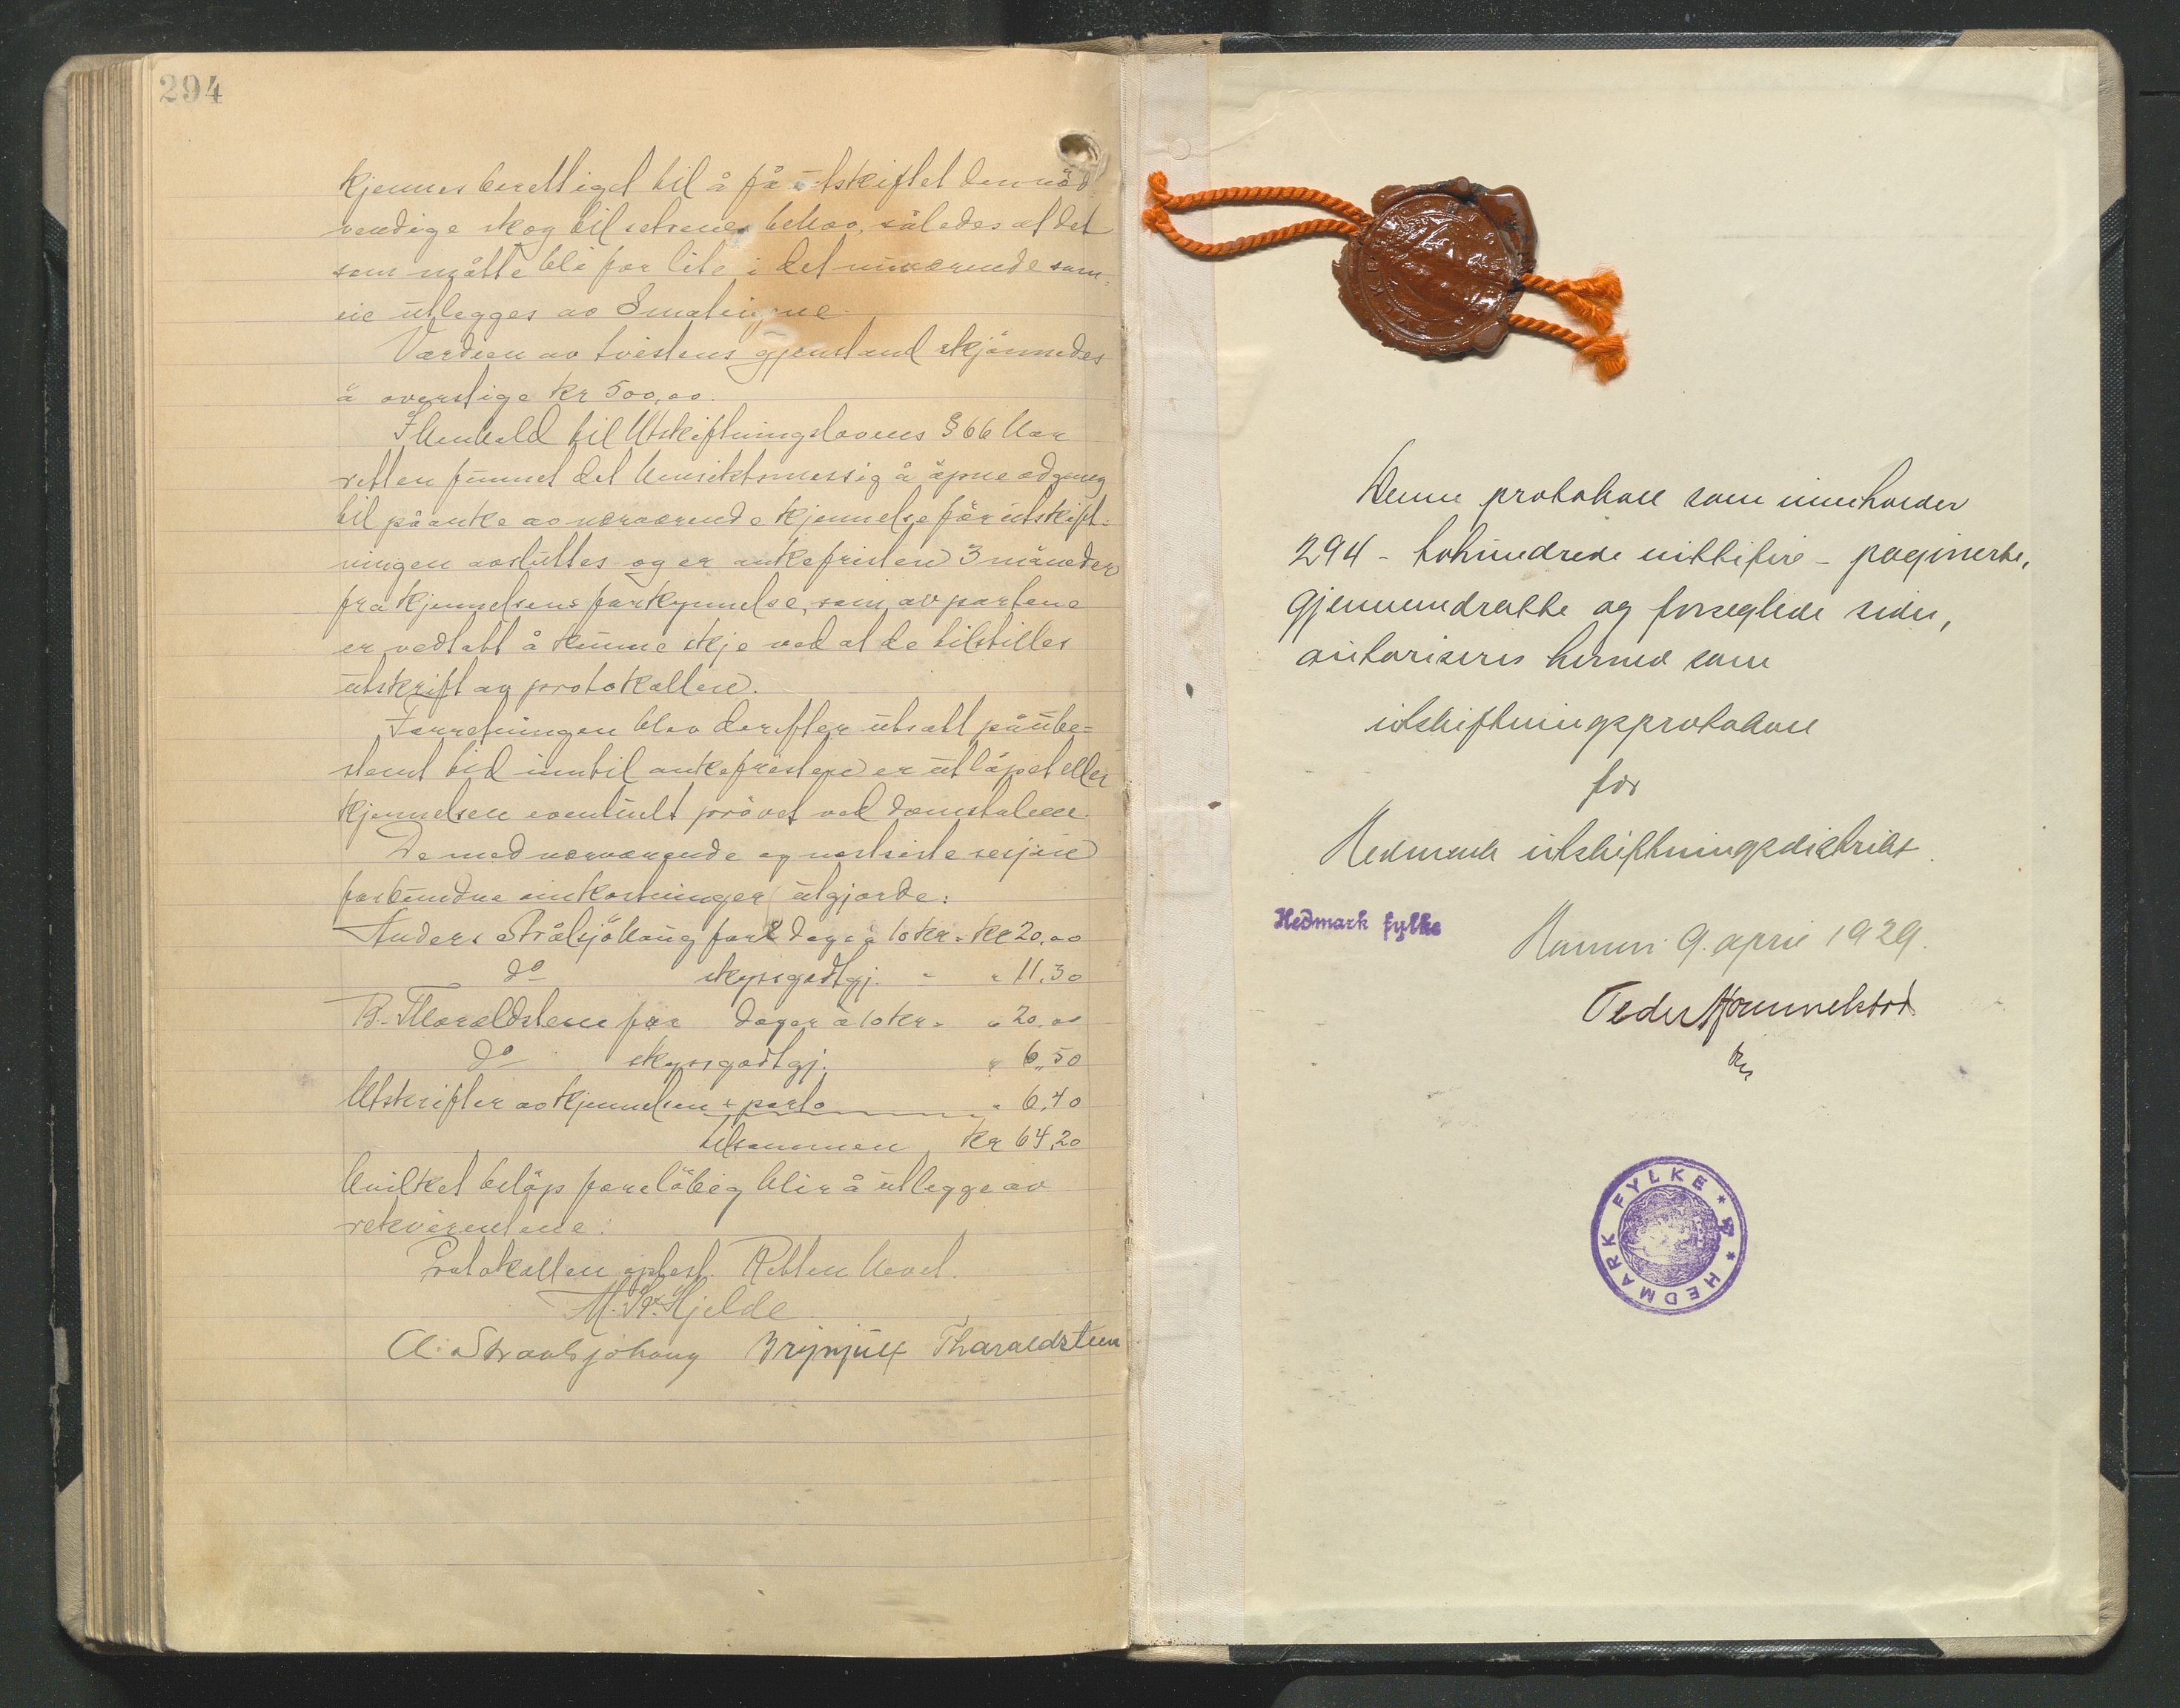 294
kjennes berettiget til å få utskiftet den nöd-
vendige skog til setrenes behov, således at det
som måtte bli for lite i det nuværende sam-
eie utlegges av
Verdien av tvistens gjenstand skjönnedes
å overstige kr 500,00.
I henhold til Utskiftningslovens § 66 har
retten funnet det hensiktsmessig å åpne adgang
til påanke av nærværende kjennelse för utskift-
ningen avsluttes og er ankefristen 3 måneder
fra kjennelsens forkynnelse, som av partene
er vedtatt å kunne skje ved at de tilstilles
utskrift av protokollen.
Forretningen blev derefter utsatt på ube-
stemt tid inntil ankefristen er utlöpet eller
kjennelsen eventuelt prövet ved domstolene.
De med nærværende og nestsiste sesjon
forbundne omkostninger utgjorde:
Anders Strålsjöhaug for 2 dage à 10 kr = kr 20,00
do skyssgodtgj. - " 11,30
B. Tharaldsteen for dager à 10 kr = " 20,00
do skyssgodtgj. " 6,50
Utskrifter av kjennelsen + porto " 6,40
tilsammen kr 64,20
hvilket belöp foreløbig blir å utlegge av
rekvirentene.
Protokollen oplest. Retten hevet.
Hjelde
A. Straalsjøhaug Brynjulf Tharaldsteen
Denne protokoll som inneholder
294 - tohundrede nittifire - paginerte,
gjennemdratte og forseglede sider,
autoriseres herved som
utskiftningsprotokoll
for
Hedmark utskiftningsdistrikt.
Hedmark fylke
Hamar 9. april 1929.
Peder
HEDMARK FYLKE